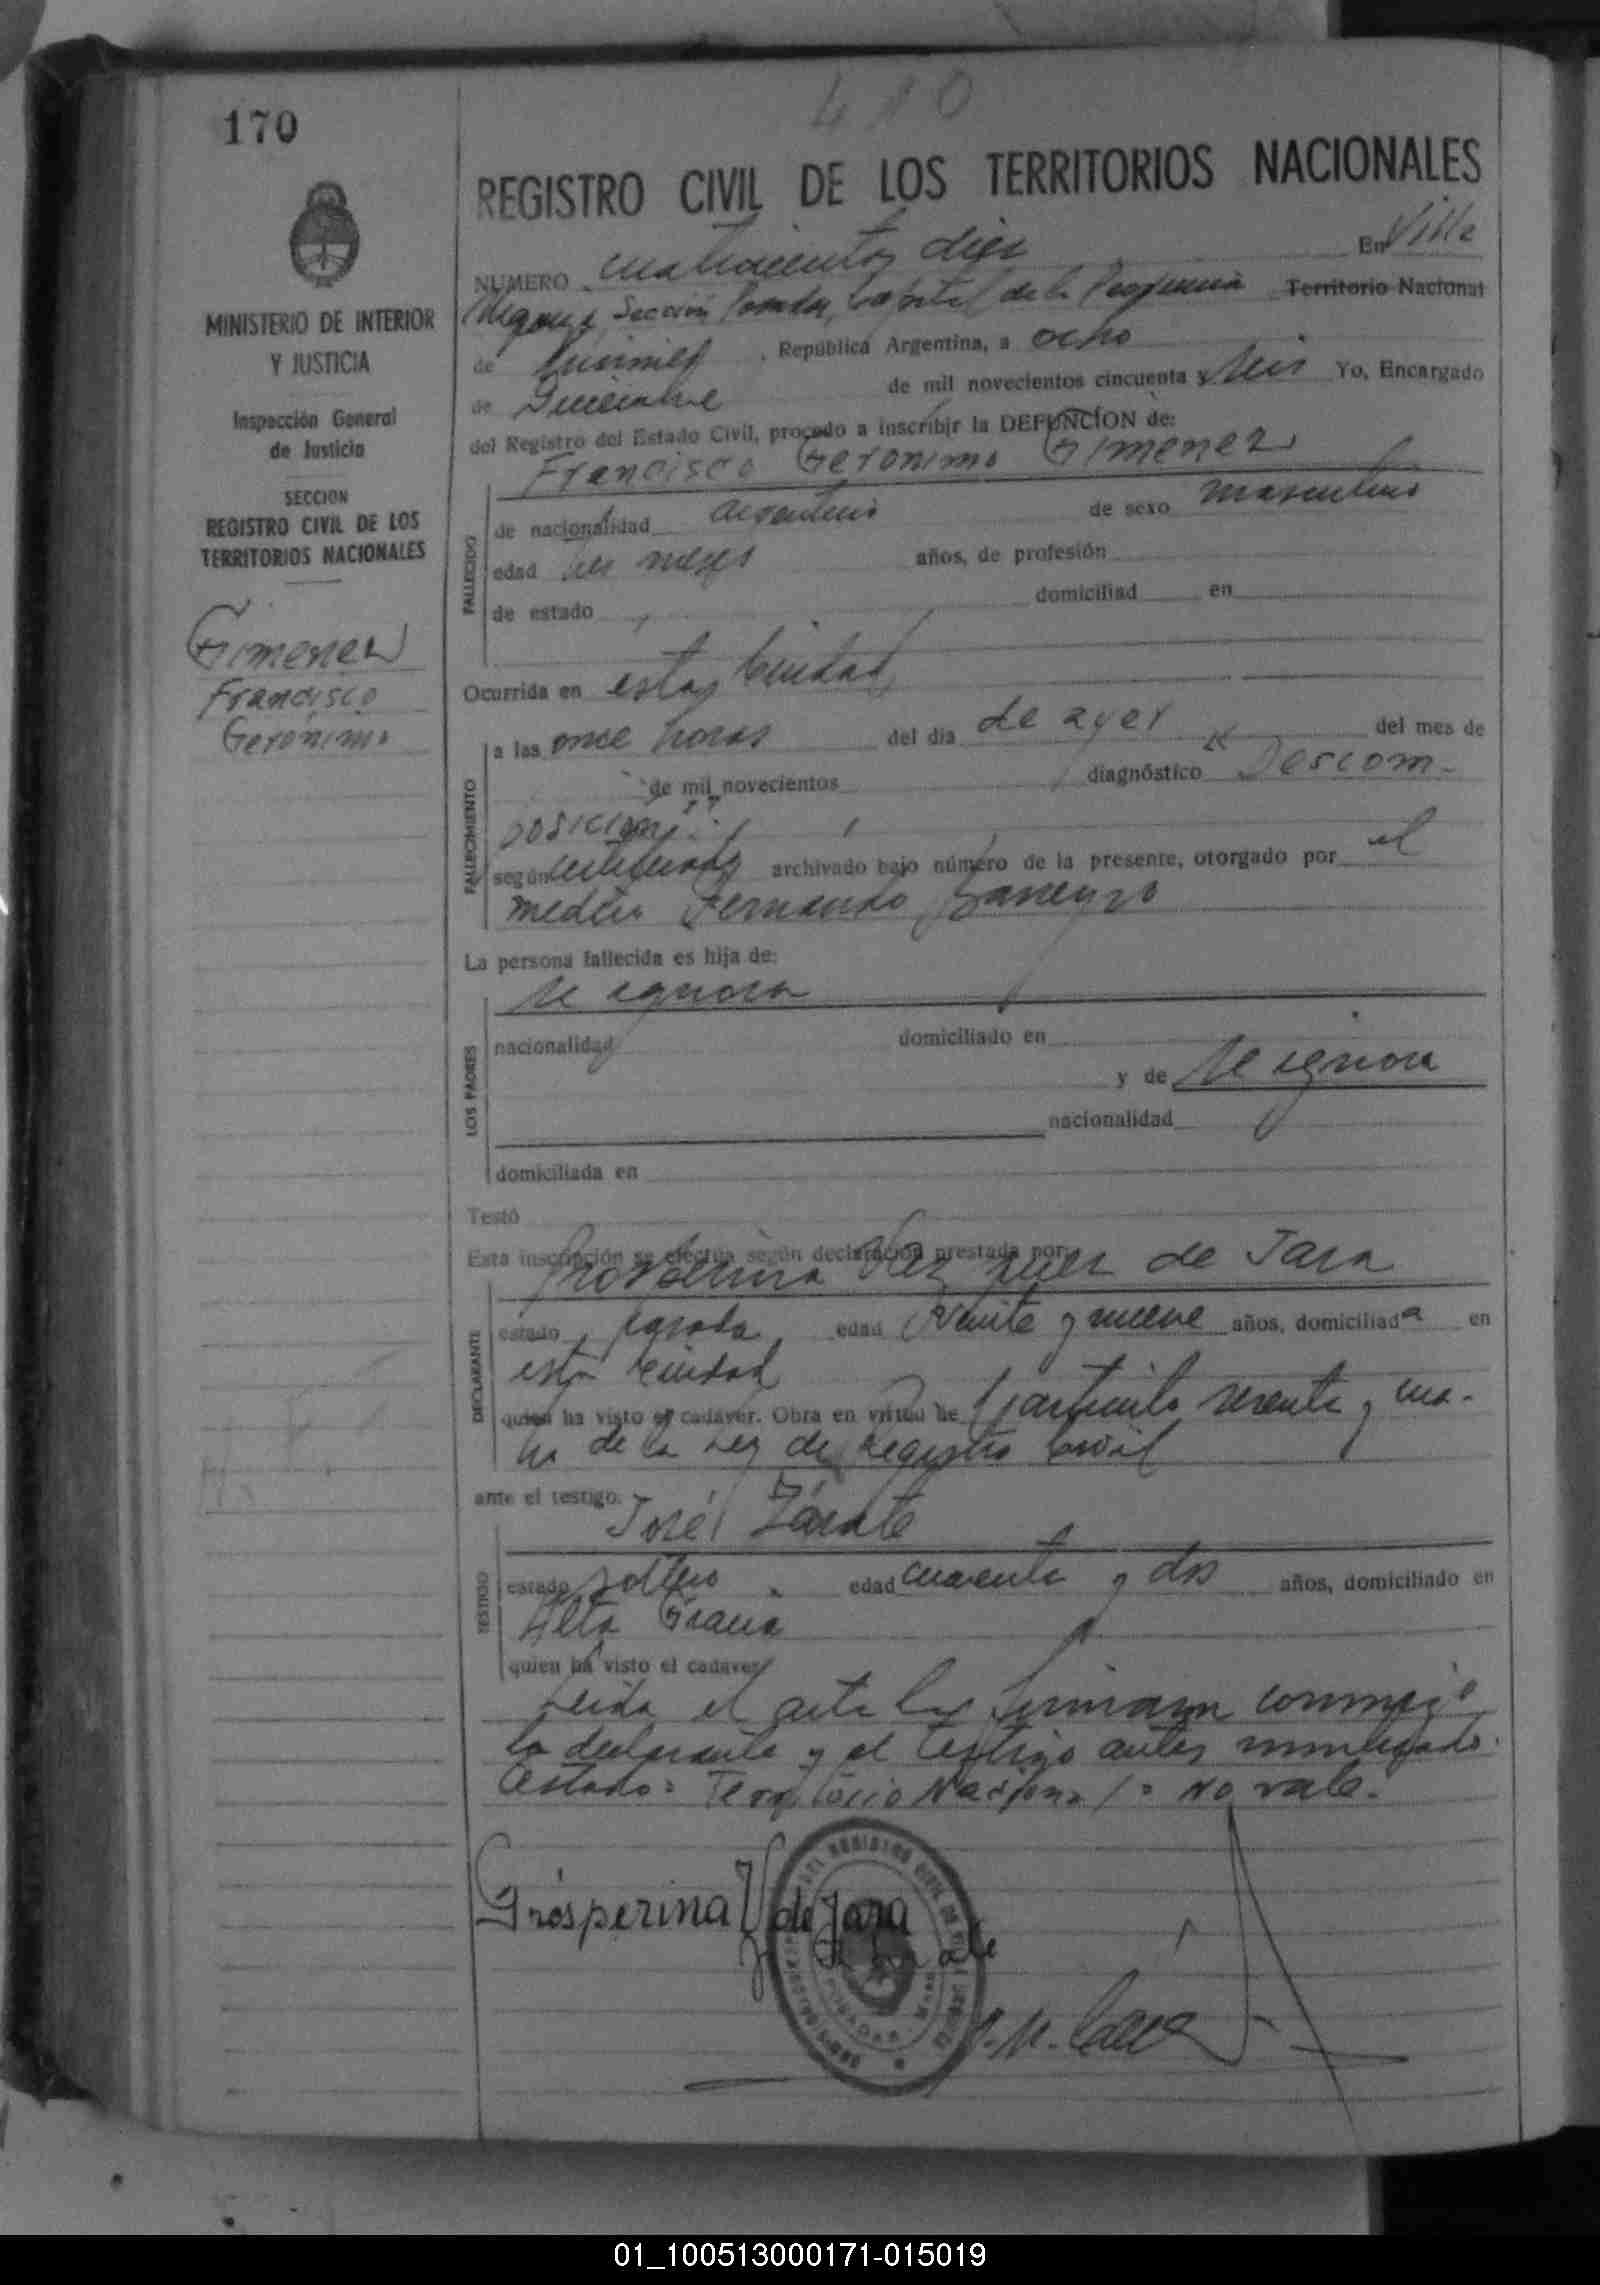 410
170
REGISTRO CIVIL DE LOS TERRITORIOS NACIONALES
MINISTERIO DE INTERIOR
Y JUSTICIA
Inspección General
de Justicia
SECCION
REGISTRO CIVIL DE LOS
TERRITORIOS NACIONALES
Gimenez
Francisco
Gerónimo
NUMERO cuatrocientos diez En Villa
Sección Posadas, Capital de la Provincia Territorio Nacional
de Misiones, República Argentina, a ocho
de Diciembre de mil novecientos cincuenta y seis Yo, Encargado
del Registro del Estado Civil, procedo a inscribir la DEFUNCION de:
Francisco Geronimo Gimenez
FALLECIDO
de nacionalidad argentino de sexo masculino
edad tres meses años, de profesión
de estado domiciliad en
Ocurrida en esta Ciudad
FALLECIMIENTO
a las once horas del día de ayer del mes de
de mil novecientos diagnóstico Descom-
posición
según certificado archivado bajo número de la presente, otorgado por el
médico Fernando Barreyro
La persona fallecida es hija de:
se ignora
LOS PADRES
nacionalidad domiciliado en
y de se ignora
nacionalidad
domiciliada en
Testó
Esta inscripción se efectúa según declaración prestada por:
Prosperina de Jara
DECLARANTE
estado casada edad veinte y nueve años, domiciliada en
esta ciudad
quien ha visto el cadáver. Obra en virtud de artículo sesenta y cua-
tro de la Ley de Registro Civil
ante el testigo:
José Zárate
TESTIGO
estado soltero edad cuarenta y dos años, domiciliado en
Alta Gracia
quien ha visto el cadáver
Leida el acta la firmaron conmigo
la declarante y el testigo antes nombrado.
Testado: Territorio Nacional: No vale.
Prósperina V de Jara
01_100513000171-015019